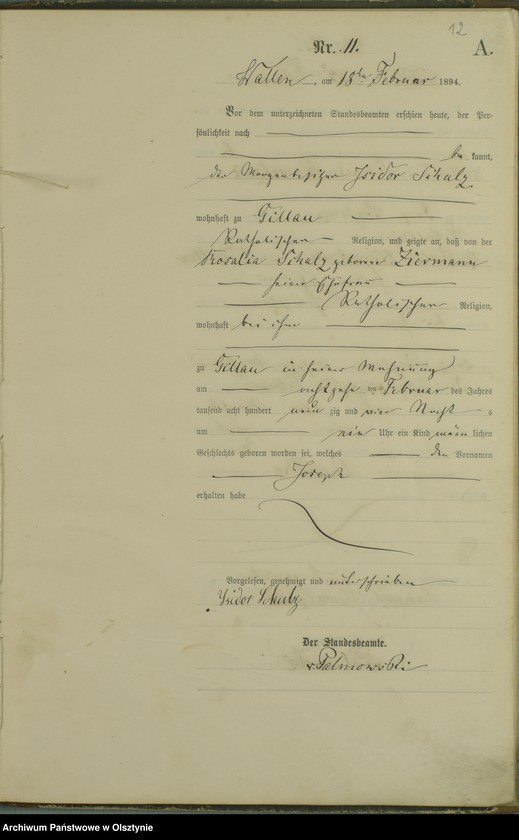 12
Nr. 11. A.
Wallen, am 18ten Februar 1894.
Vor dem unterzeichneten Standesbeamten erschien heute, der Per-
sönlichkeit nach
be kannt,
der Isidor Schulz
wohnhaft zu Gillau
Katholischer Religion, und zeigte an, daß von der
Rosalia Schulz geborene Ziermann
seiner Ehefrau
Katholischer Religion,
wohnhaft bei ihm
zu Gillau in seiner Wohnung
am achtzehn ten Februar des Jahrs
tausend acht hundert neun zig und vier Nacht s
um ein Uhr ein Kind männ lichen
Geschlechts geboren worden sei, welches den Vornamen
Joseph
erhalten habe
Vorgelesen, genehmigt und unterschrieben
Isidor Schulz
Der Standesbeamte.
v Palmowski
Archiwum Państwowe w Olsztynie